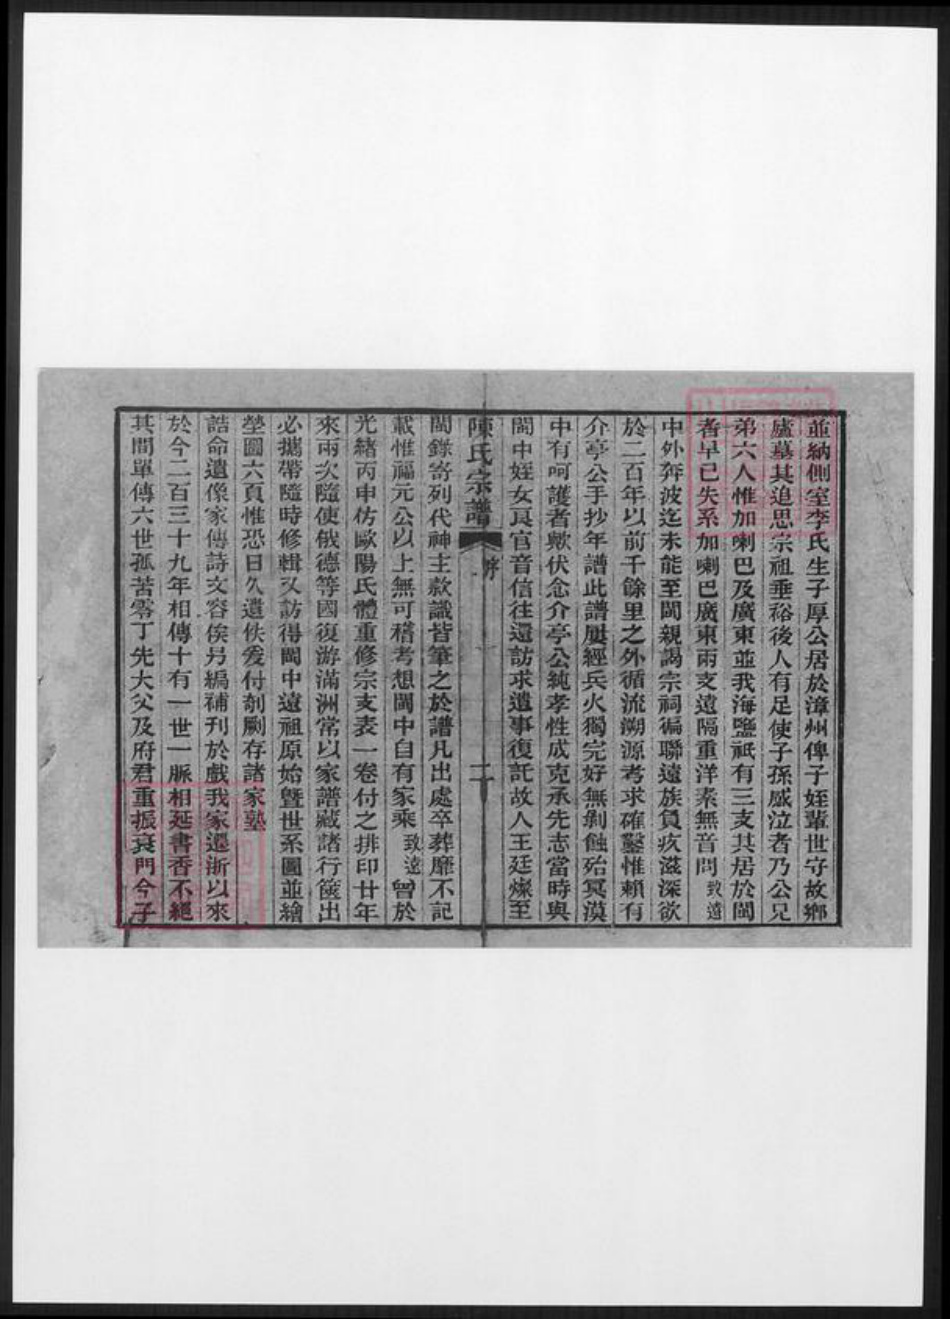 並納側室李氏生子厚公居於漳州俾子姪輩世守故鄉
廬墓其追思宗祖垂裕後人有足使子孫感泣者乃公兄
弟六人惟加喇巴及廣東並我海鹽祇有三支其居於閩
者早已失系加喇巴廣東兩支遠隔重洋素無音問致遠
中外奔波迄未能至閩親謁宗祠徧聯遠族負疚滋深欲
於二百年以前千餘里之外循流溯源考求確鑿惟賴有
介亭公手抄年譜此譜屢經兵火獨完好無剝蝕殆冥漠
中有呵護者歟伏念介亭公純孝性成克承先志當時與
閩中姪女眞官音信往還訪求遺事復託故人王廷燦至
陳氏宗譜 序 二
閩錄寄列代神主款識皆筆之於譜凡出處卒葬靡不記
載惟福元公以上無可稽考想閩中自有家乘致遠曾於
光緒丙申仿歐陽氏體重修宗支表一卷付之排印廿年
來兩次隨使俄德等國復游滿洲常以家譜藏諸行篋出
必攜帶隨時修輯又訪得閩中遠祖原始曁世系圖並繪
塋圖六頁惟恐日久遺佚爰付剞劂存諸家塾
誥命遺像家傳詩文容俟另編補刊於戲我家遷浙以來
於今二百三十九年相傳十有一世一脈相延書香不絕
其間單傳六世孤苦零丁先大父及府君重振衰門今子